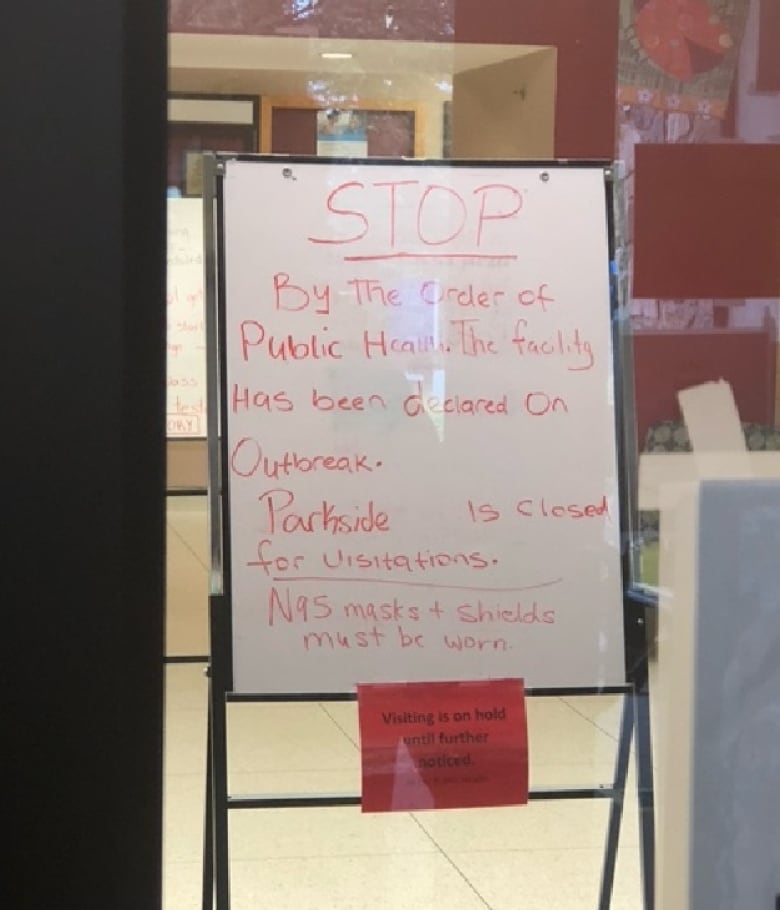 STOP
By The Order of
Public Health. The facility
Has been declared On
Outbreak.
Parkside Is Closed
for Visitations.
N95 masks + Shields
must be worn.
Visiting is on hold
until further
noticed.